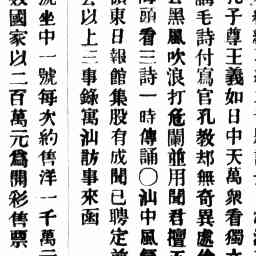 孔子尊王義如日中天萬衆看獨立
講毛詩付寫官孔教却無奇異處偷
去黑風吹浪打危闌並用聞君擅五
海頭看三詩一時傳誦〇汕中風氣
嶺東日報館集股有成聞已聘定主
去以上三事錄寓汕訪事來函
況坐中一號每次約售洋一千萬元
數國家以二百萬元爲開彩售票